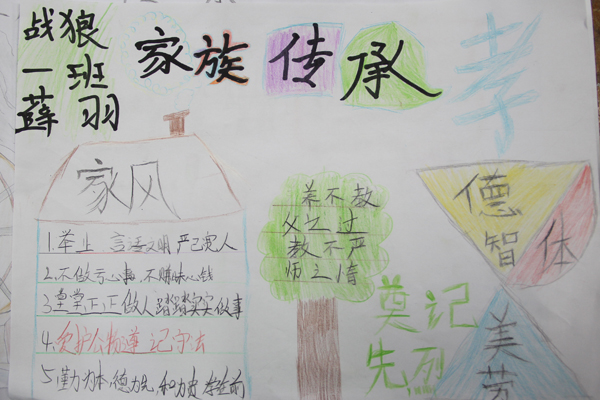 战狼
一班
薛羽
家族传承
孝
家风
1.举止 言语文明 严己宽人
2.不做亏心事 不赚昧心钱
3.堂堂正正做人踏踏实实做事
4.爱护公物遵记守法
5.勤为本,德为先,和为贵
养不教
父之过
教不严
师之惰
德
智 体
美
奠记
先烈